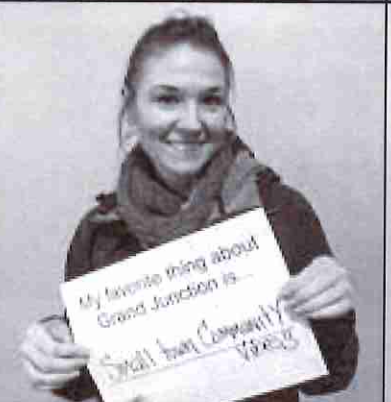 My favorite thing about
Grand Junction is...
Small town Community